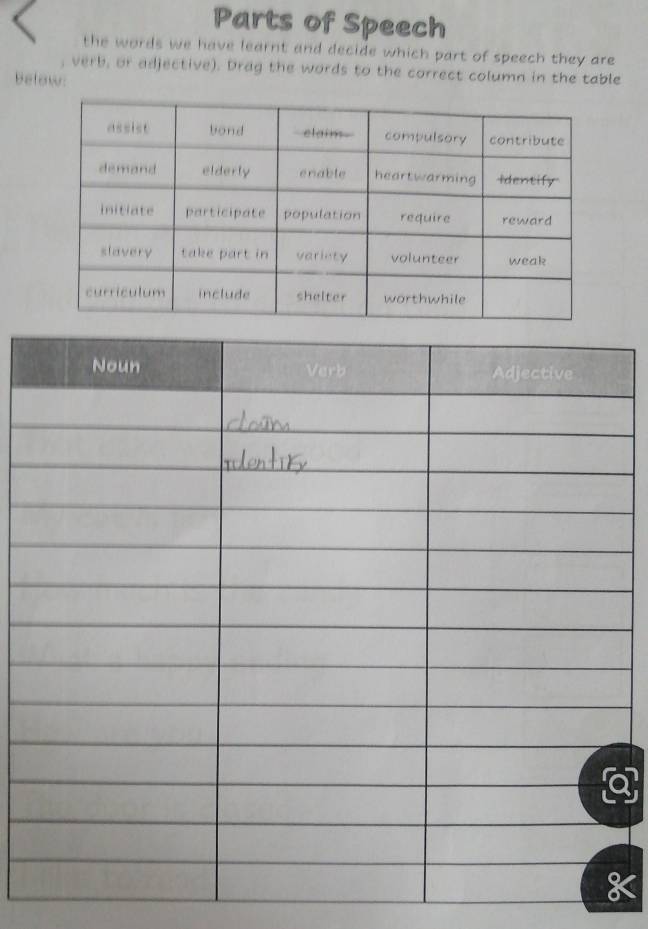 Parts of Speech
the words we have learnt and decide which part of speech they are
, verb, or adjective). Drag the words to the correct column in the table
below:
assist bond claim compulsory contribute
demand elderly enable heartwarming identify
initiate participate population require reward
slavery take part in variety volunteer weak
curriculum include shelter worthwhile
Noun Verb Adjective
claim
identify